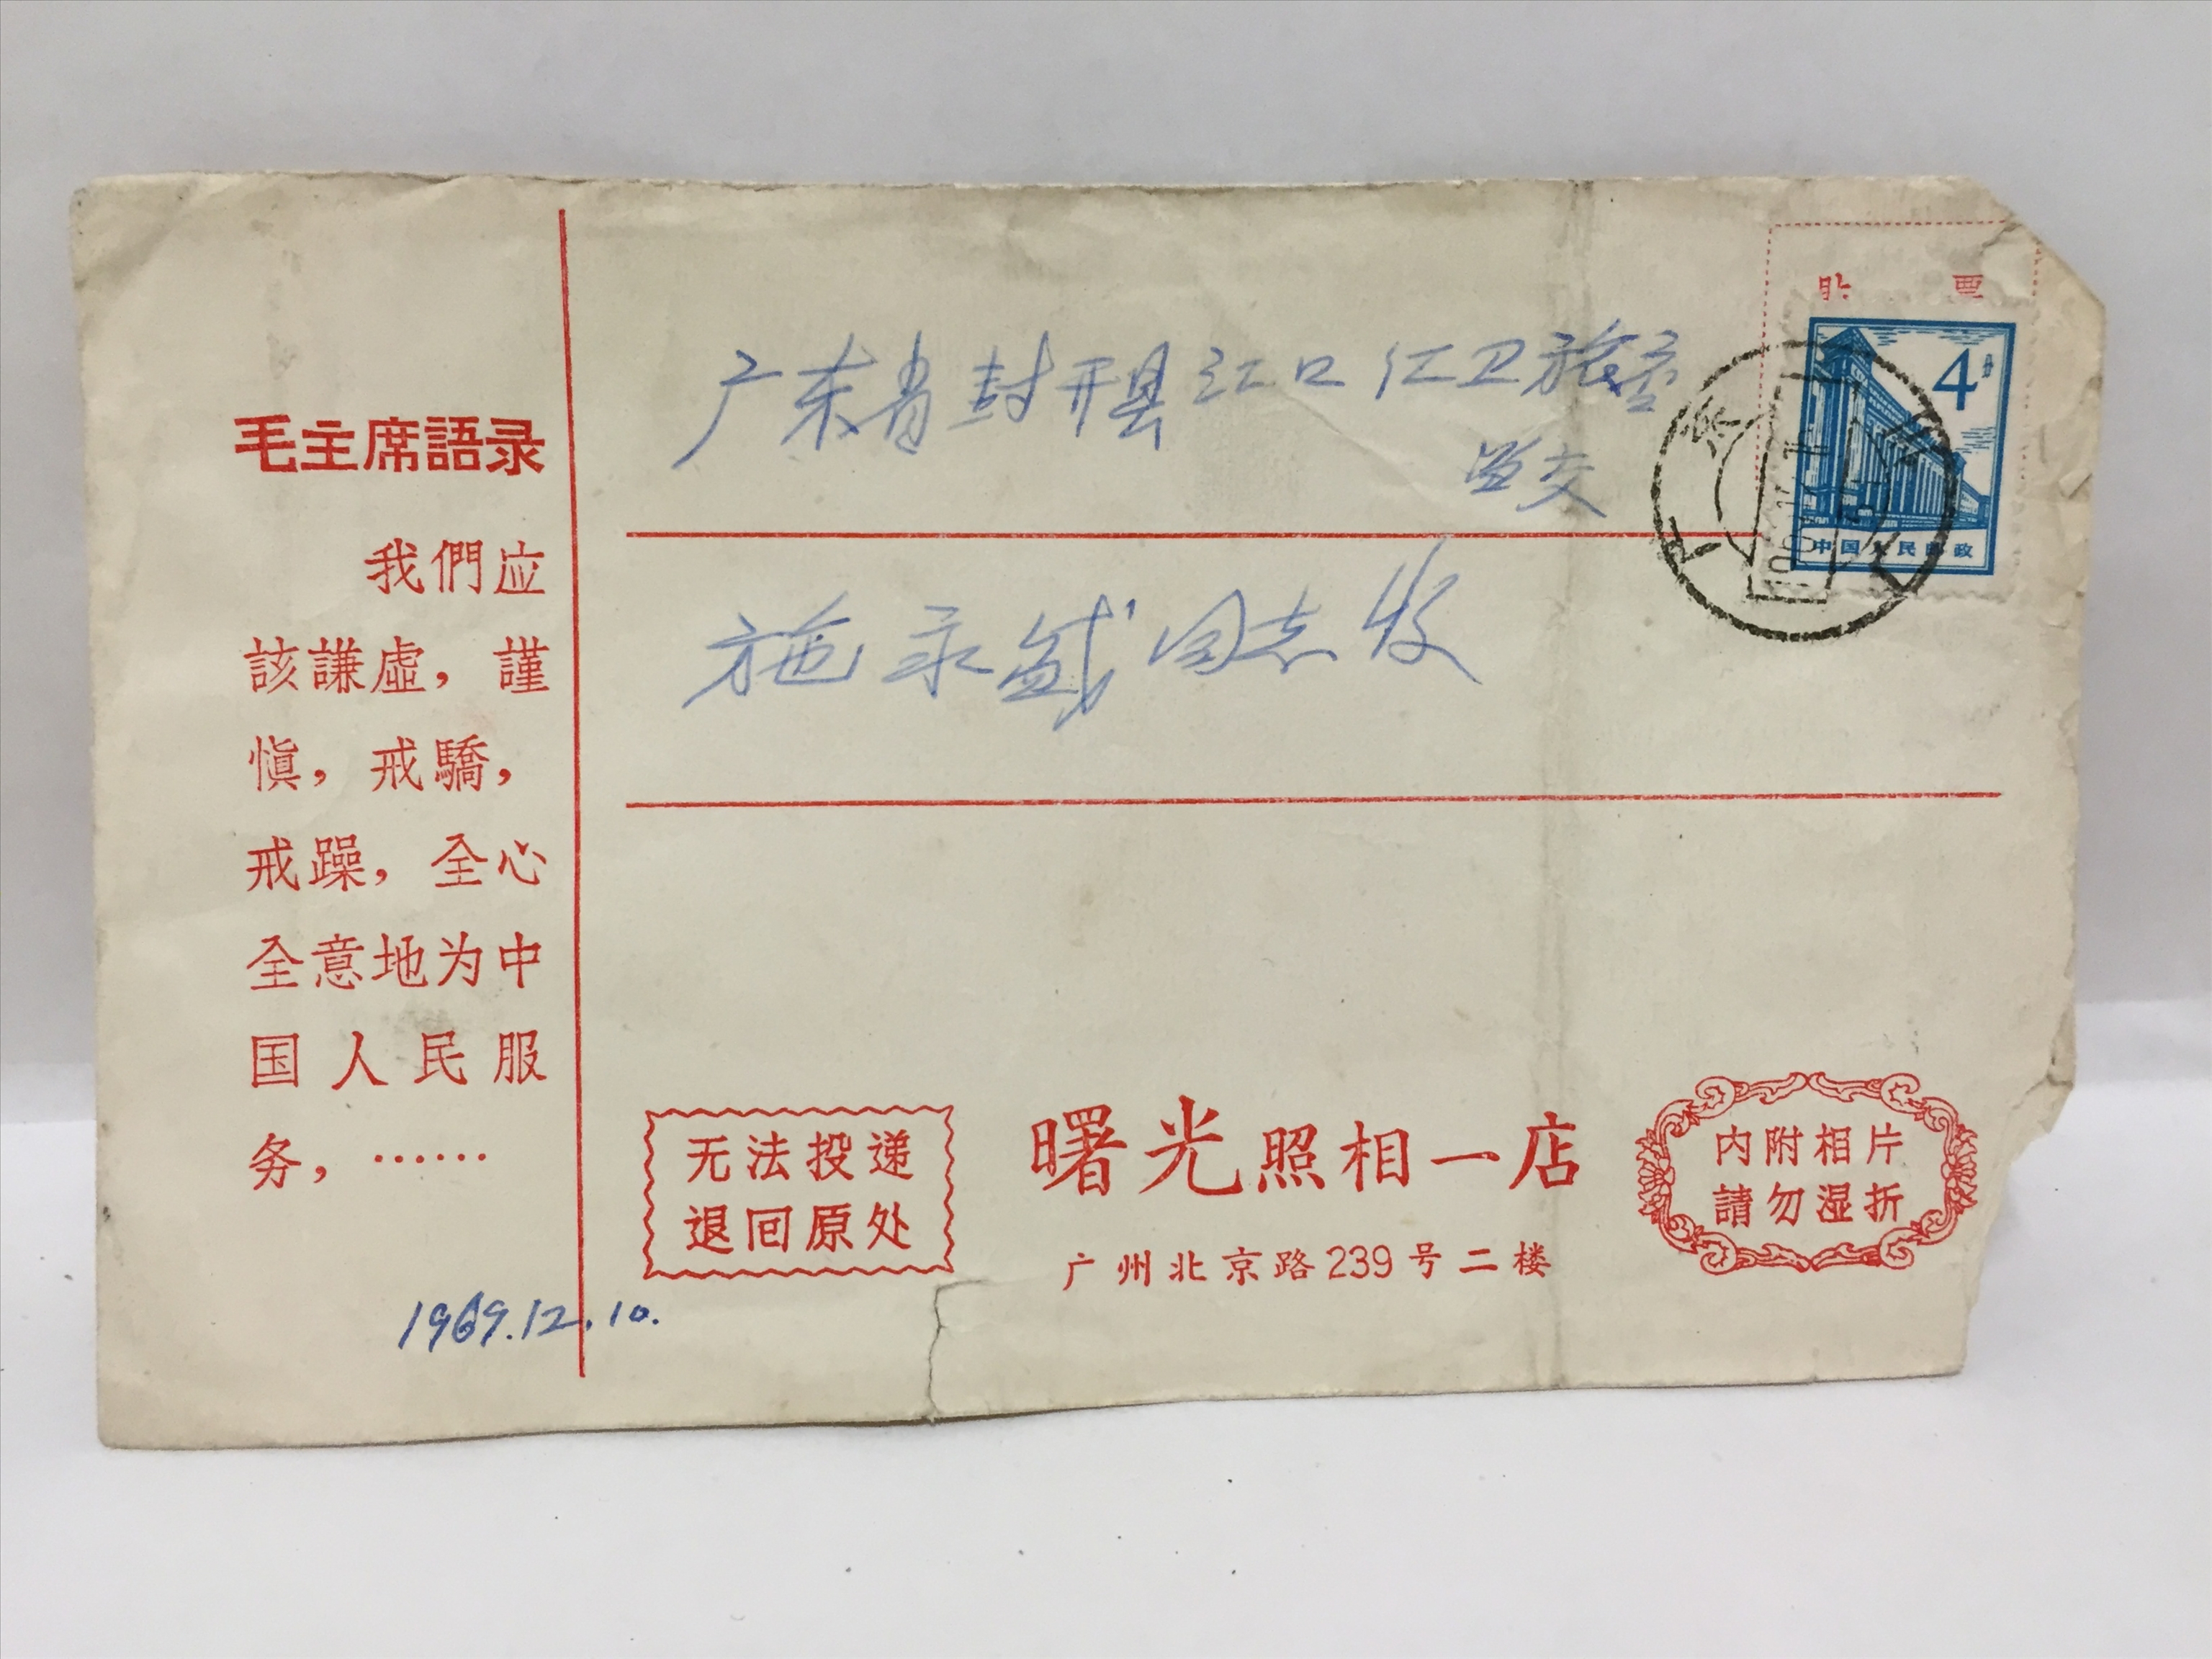 毛主席語录
我們应
該謙虛，謹
慎，戒驕，
戒躁，全心
全意地为中
国人民服
务，……
贴 票
4分
中国人民邮政
广东省封开县江口红卫旅店
交
施 同志收
无法投递
退回原处
曙光照相一店
广州北京路239号二楼
内附相片
請勿湿折
1969.12.10.